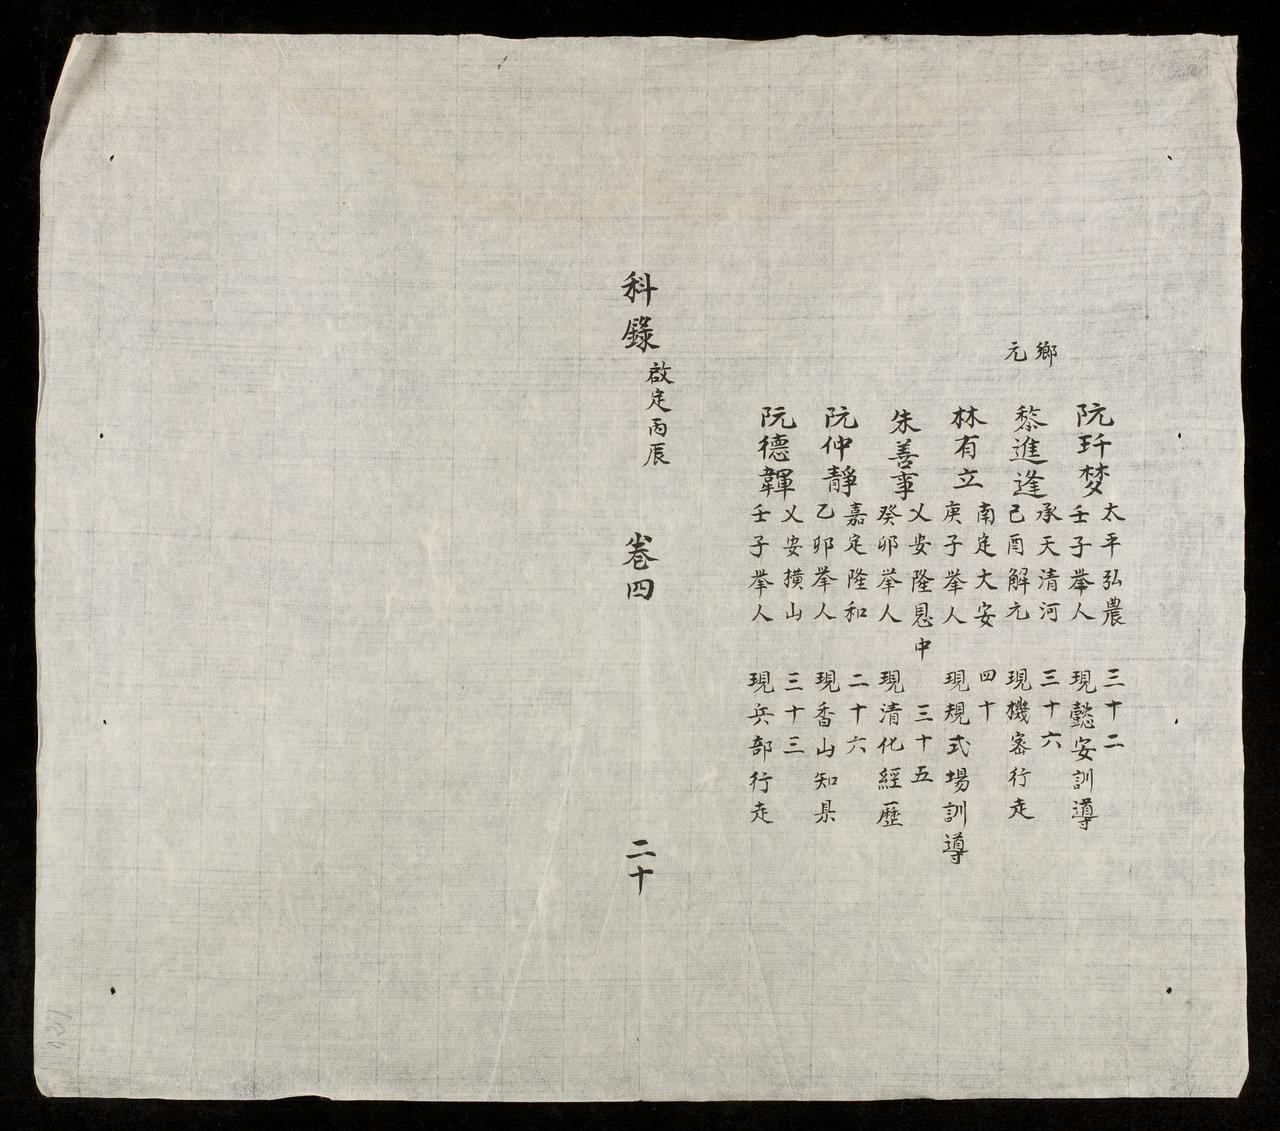 阮玕梦
太平弘農 三十二
壬子挙人 現懿安訓導
鄉元
黎進逢
承天清河 三十六
己酉解元 現機密行走
林有立
南定大安 四十
庚子挙人 現規式場訓導
朱善事
乂安隆恩中 三十五
癸卯挙人 現清化經歷
阮仲靜
嘉定隆和 二十六
乙卯挙人 現香山知県
阮德韗
乂安横山 三十三
壬子挙人 現兵部行走
科錄 啟定丙辰 卷四 二十